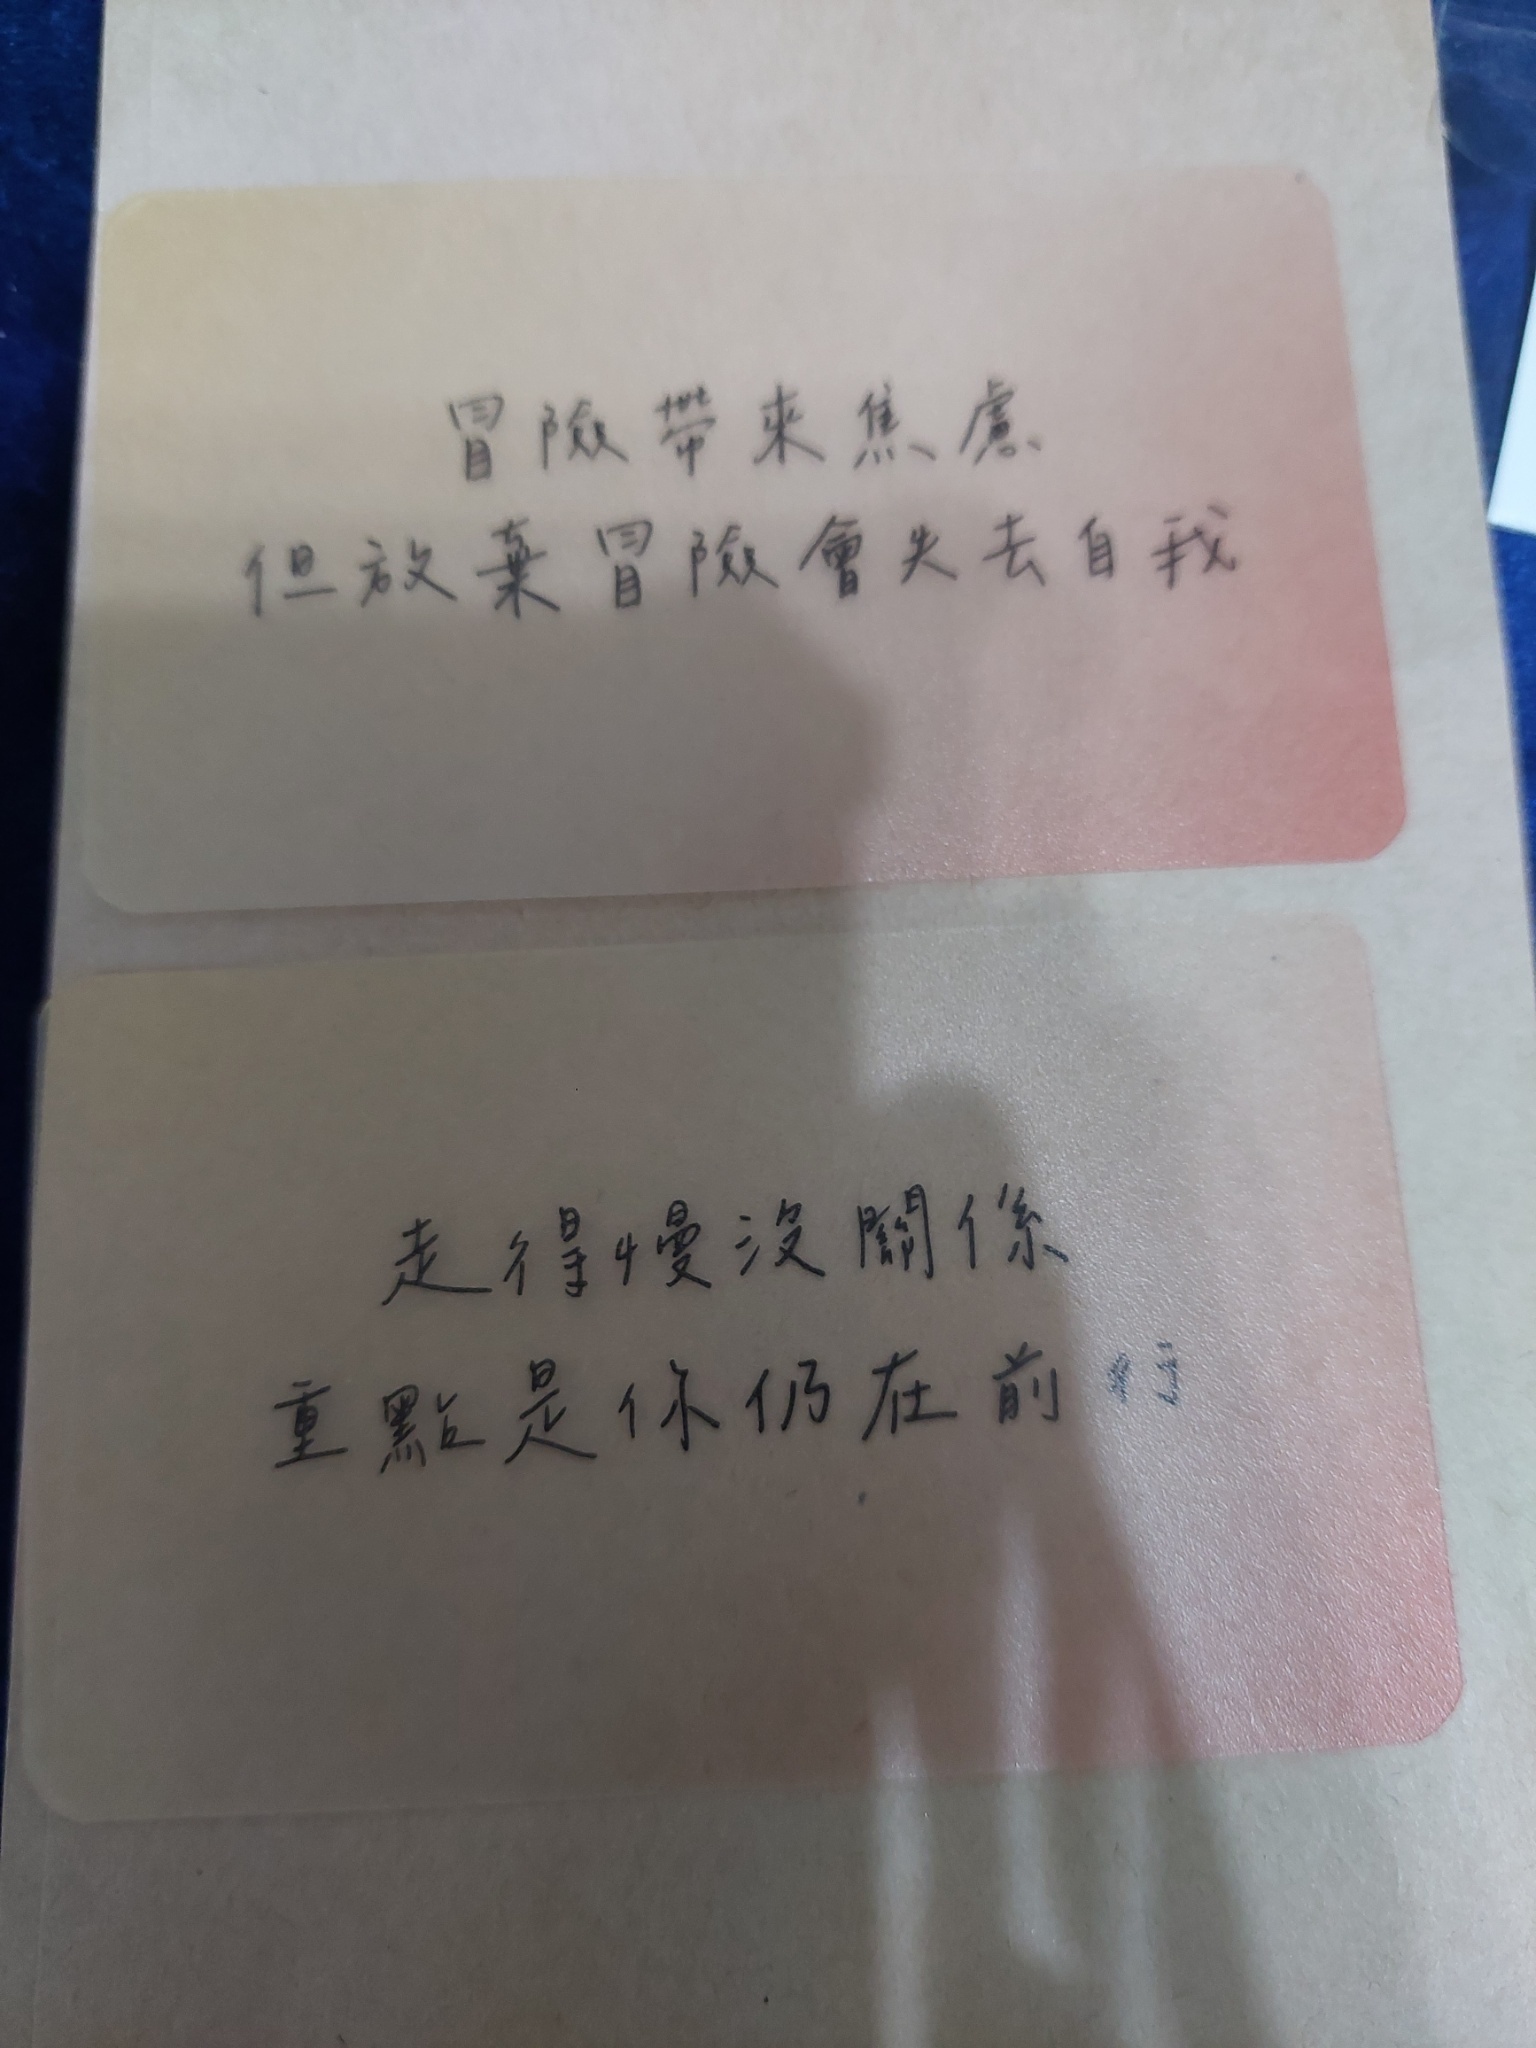 冒險帶來焦慮
但放棄冒險會失去自我
走得慢沒關係
重點是你仍在前行